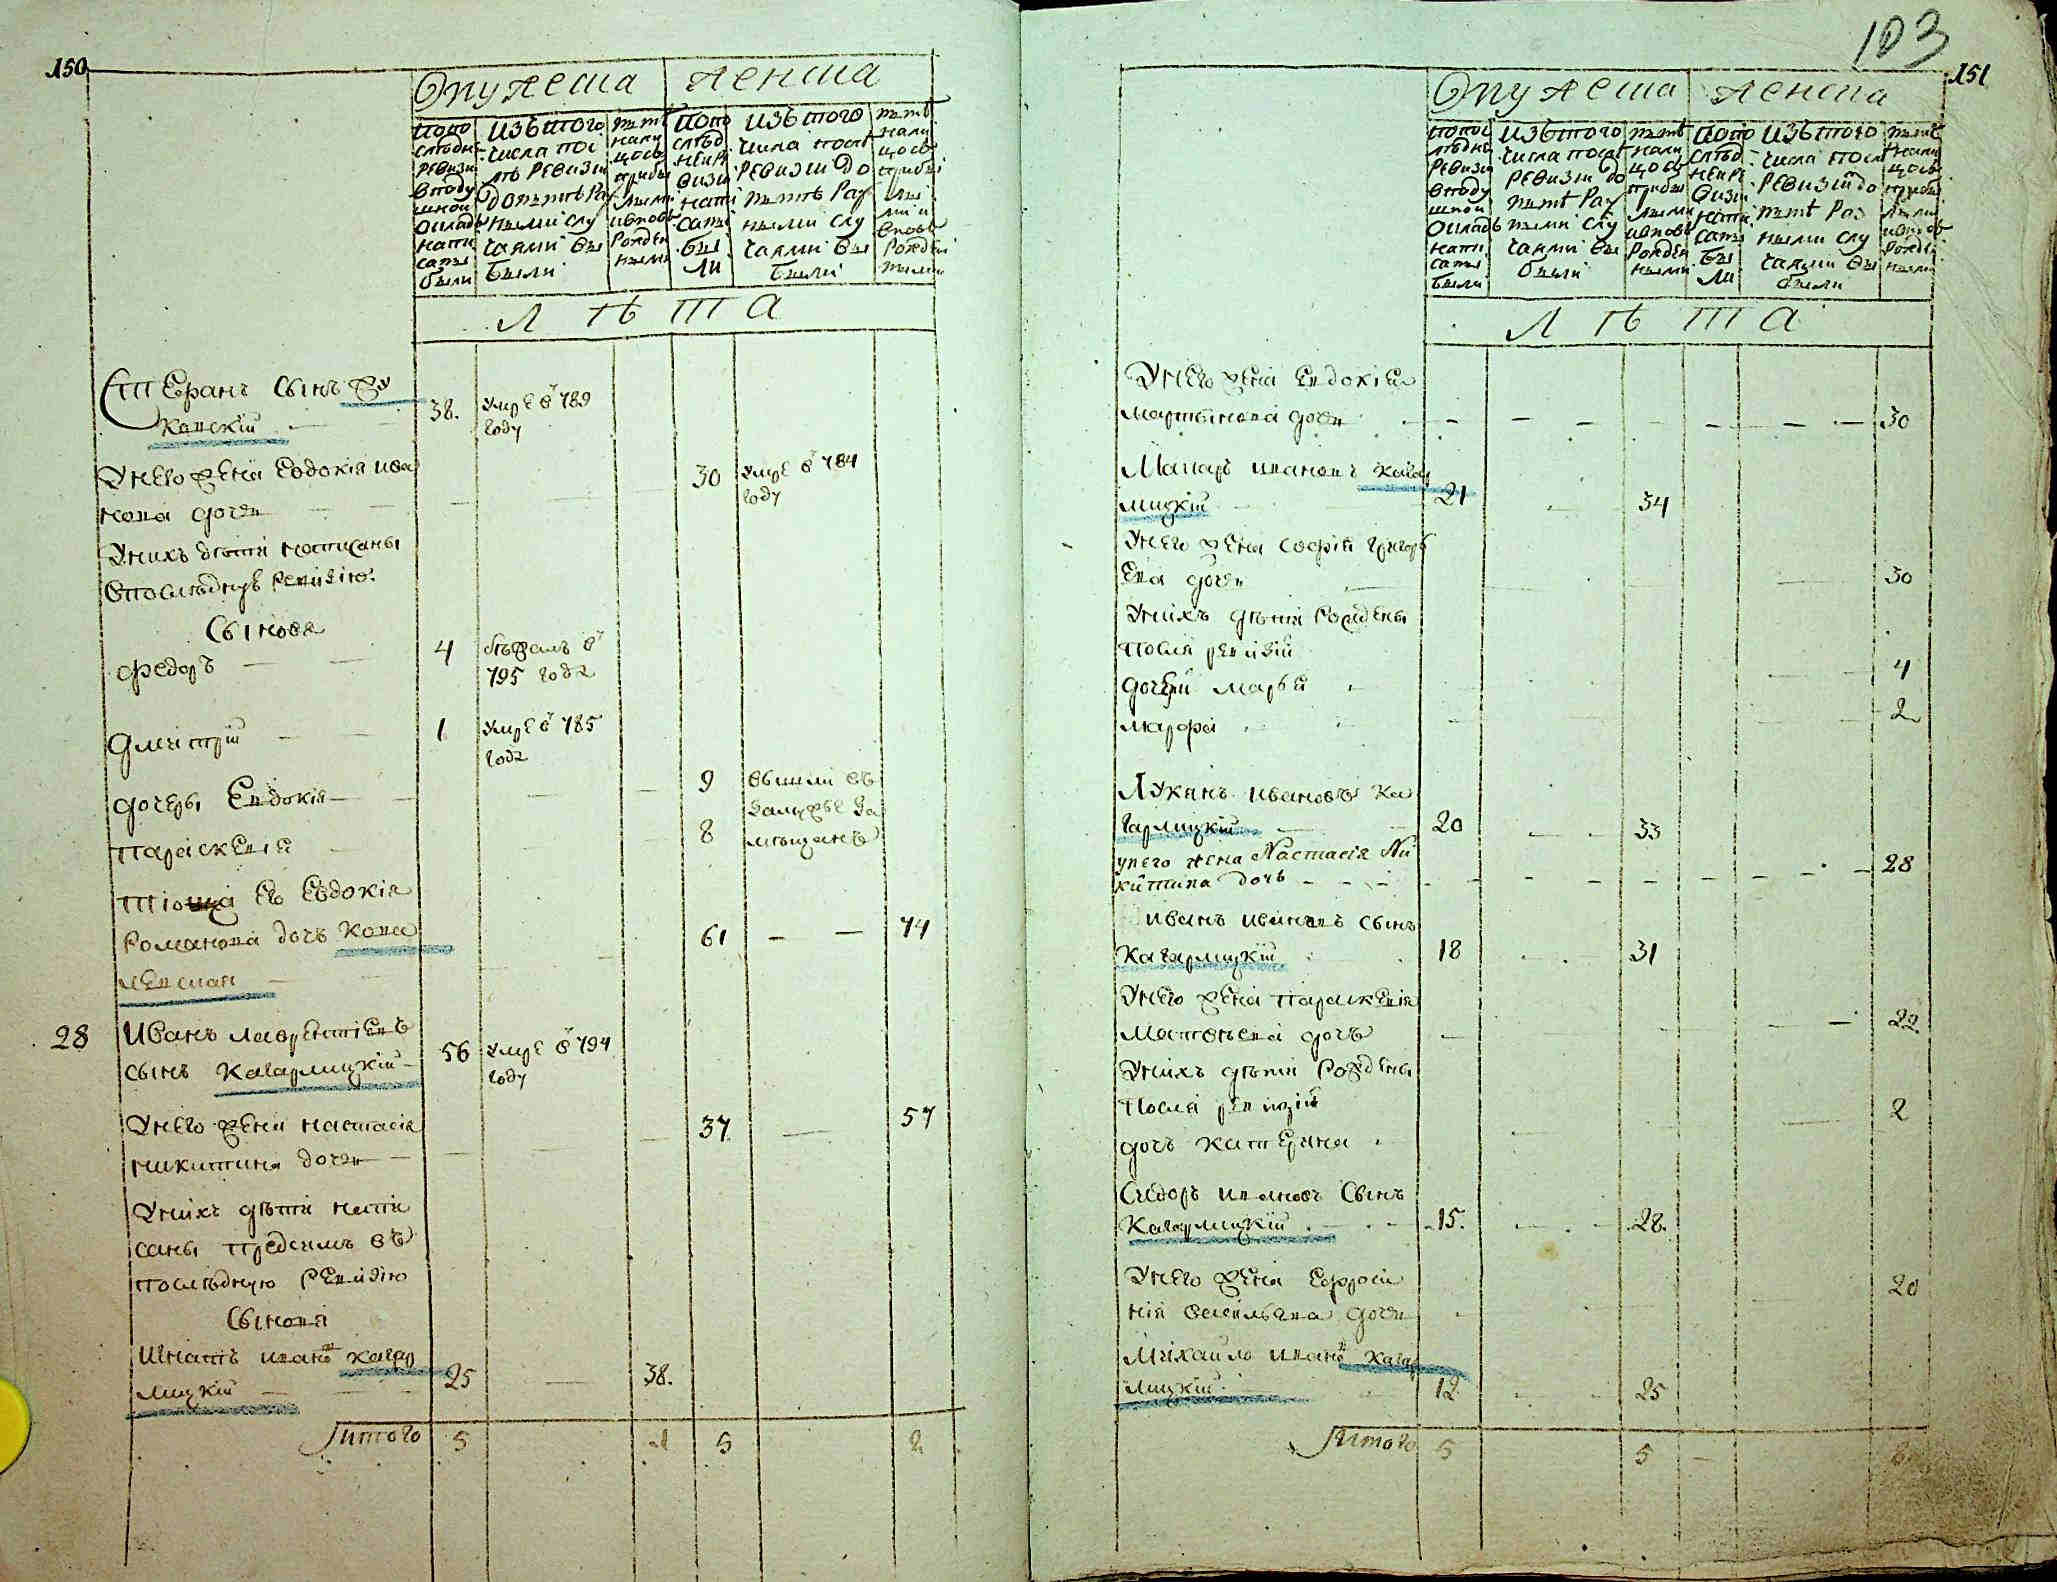 150
Мужеска
Женска
по по
следне
ревизи
в поду
шном
окладе
напи
саны
были
изътого
числа пос
ле ревизии
до ныне раз
ными слу
чаями вы
были
ныне
нали
цо съ
прибы
лыми
и вновь
рожден
ными
по по
след
ней ре
визи
напи
саны
бы
ли
изътого
числа посл
ревизии до
ныне раз
ными слу
чаями вы
были
ныне
нали
цо съ
прибы
лы
ми и
вновь
рожден
ными
Л Ѣ Т А
Степанъ сынъ
38. умре в 789
году
у него жена Евдокия Ива
нова дочь
30 умре в 784
году
у нихъ дети написаны
в последнюю ревизию
сыновя
Федоръ 4 бежалъ в
795 года
Дмитрий 1 умре в 785
года
дочери Евдокия 9 вышли въ
замужье за
Параскевия 8 мещанъ
ево Евдокия
Романова дочь 61 74
28 Иванъ Лаврентиевъ
сынъ Кагарлицкий 56 умре в 794
году
у него жена Настасия 37 57
Никитина дочь
у нихъ дети напи
саны предсимъ въ
последную ревизию
сыновя
Игнатъ Иванов Кагар
лицкий 25 38.
Итого 5 1 5 2
103
151
Мужеска
Женска
по пос
ледне
ревизи
в поду
шном
окладе
напи
саны
были
изътого
числа посл
ревизии до
ныне раз
ными слу
чаями вы
были
ныне
нали
цо съ
прибы
лыми
и вновь
рожден
ными
по по
след
ней ре
визи
напи
саны
бы
ли
изътого
числа посл
ревизии до
ныне раз
ными слу
чаями вы
были
ныне
нали
цо съ
прибы
лыми
и вновь
рожден
ными
Л Ѣ Т А
у него жена Евдокия
Мартинова дочь 30
Макаръ Ивановъ Кагар
лицкий 21 34
у него жена София Григорь
ева дочь 30
у нихъ дети рождены
после ревизии
дочери Марья 4
Марфа 2
Лукянъ Ивановъ Ка
гарлицкий 20 33
у него жена Настасія Ни
китина дочь 28
Иванъ Ивановъ сынъ
Кагарлицкий 18 31
у него жена Параскевия
Матвеева дочь 22
у нихъ дети рождены
после ревизии
дочь Катерина 2
Сидоръ Ивановъ сынъ
Кагарлицкий 15. 28.
у него жена Ефроси
ния Васильева дочь 20
Михайло Иванов Кагар
лицкий 12 25
Итого 5 5